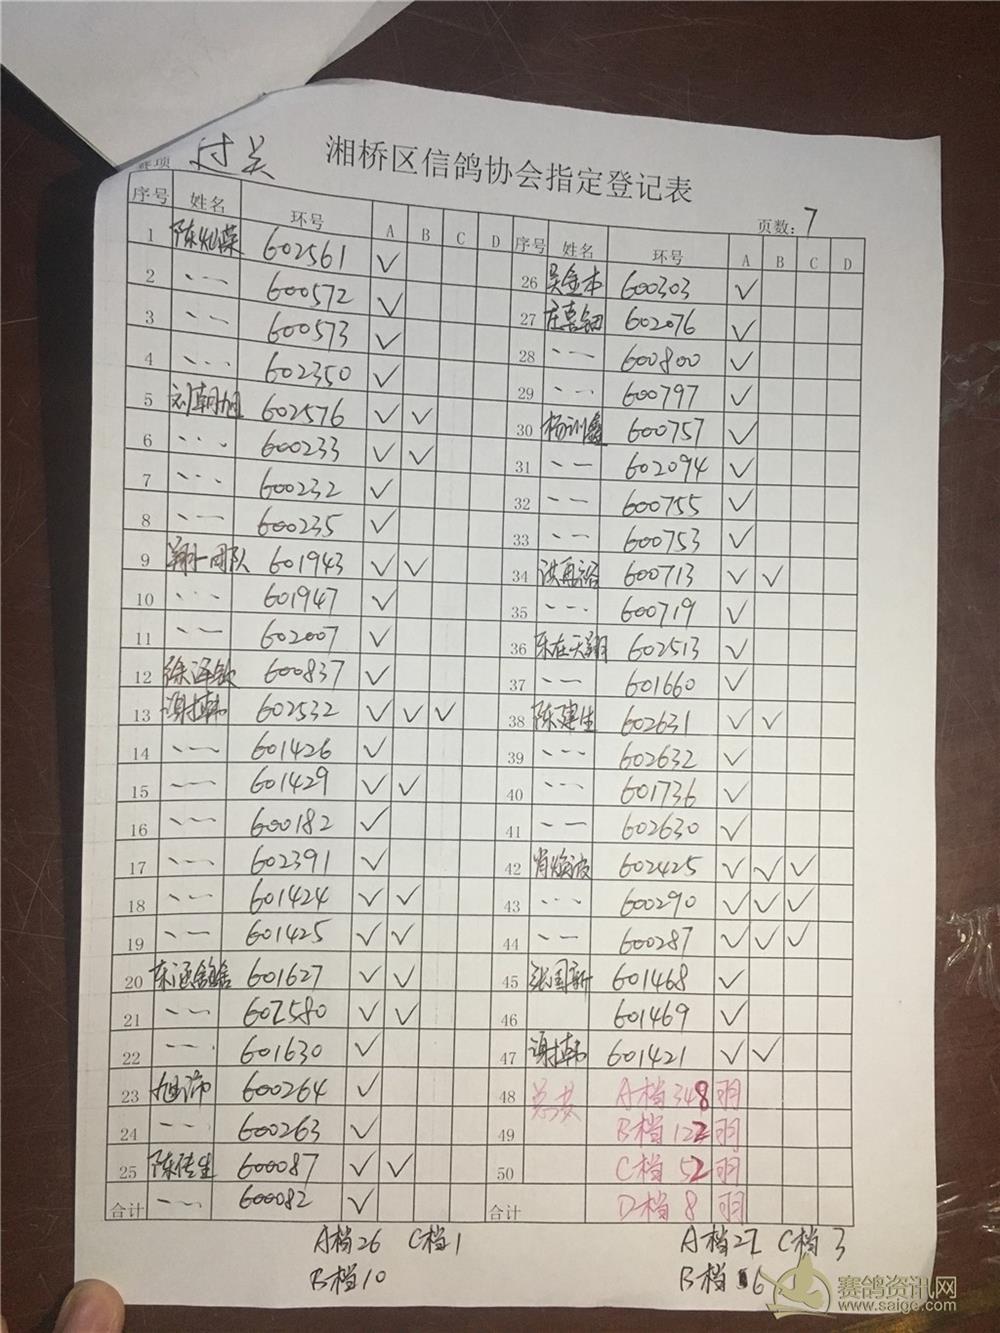 湘桥区信鸽协会指定登记表
赛项 过关
页数：7
序号 姓名 环号 A B C D
1 陈灿荣 602561 ✓
2 〃 600572 ✓
3 〃 600573 ✓
4 〃 602350 ✓
5 刘朝旭 602576 ✓ ✓
6 〃 600233 ✓ ✓
7 〃 600232 ✓
8 〃 600235 ✓
9 翔一团队 601943 ✓ ✓
10 〃 601947 ✓
11 〃 602007 ✓
12 徐泽钦 600837 ✓
13 谢楚韩 602532 ✓ ✓ ✓
14 〃 601426 ✓
15 〃 601429 ✓ ✓
16 〃 600182 ✓
17 〃 602391 ✓
18 〃 601424 ✓ ✓
19 〃 601425 ✓ ✓
20 601627 ✓ ✓
21 〃 602580 ✓ ✓
22 〃 601630 ✓
23 旭沛 600264 ✓
24 〃 600263 ✓
25 陈传生 600087 ✓ ✓
合计 〃 600082 ✓
A档26 C档1
B档10
序号 姓名 环号 A B C D
26 吴金本 600303 ✓
27 602076 ✓
28 〃 600800 ✓
29 〃 600797 ✓
30 杨训鑫 600757 ✓
31 〃 602094 ✓
32 〃 600755 ✓
33 〃 600753 ✓
34 洪再裕 600713 ✓ ✓
35 〃 600719 ✓
36 乐在天翔 602513 ✓
37 〃 601660 ✓
38 陈建生 602631 ✓ ✓
39 〃 602632 ✓
40 〃 601736 ✓
41 〃 602630 ✓
42 肖焕波 602425 ✓ ✓ ✓
43 〃 600290 ✓ ✓ ✓
44 〃 600287 ✓ ✓ ✓
45 张国新 601468 ✓
46 601469 ✓
47 谢楚韩 601421 ✓ ✓
48 总共 A档348羽
49 B档122羽
50 C档52羽
合计 D档8羽
A档22 C档3
B档6
赛鸽资讯网
www.saige.com